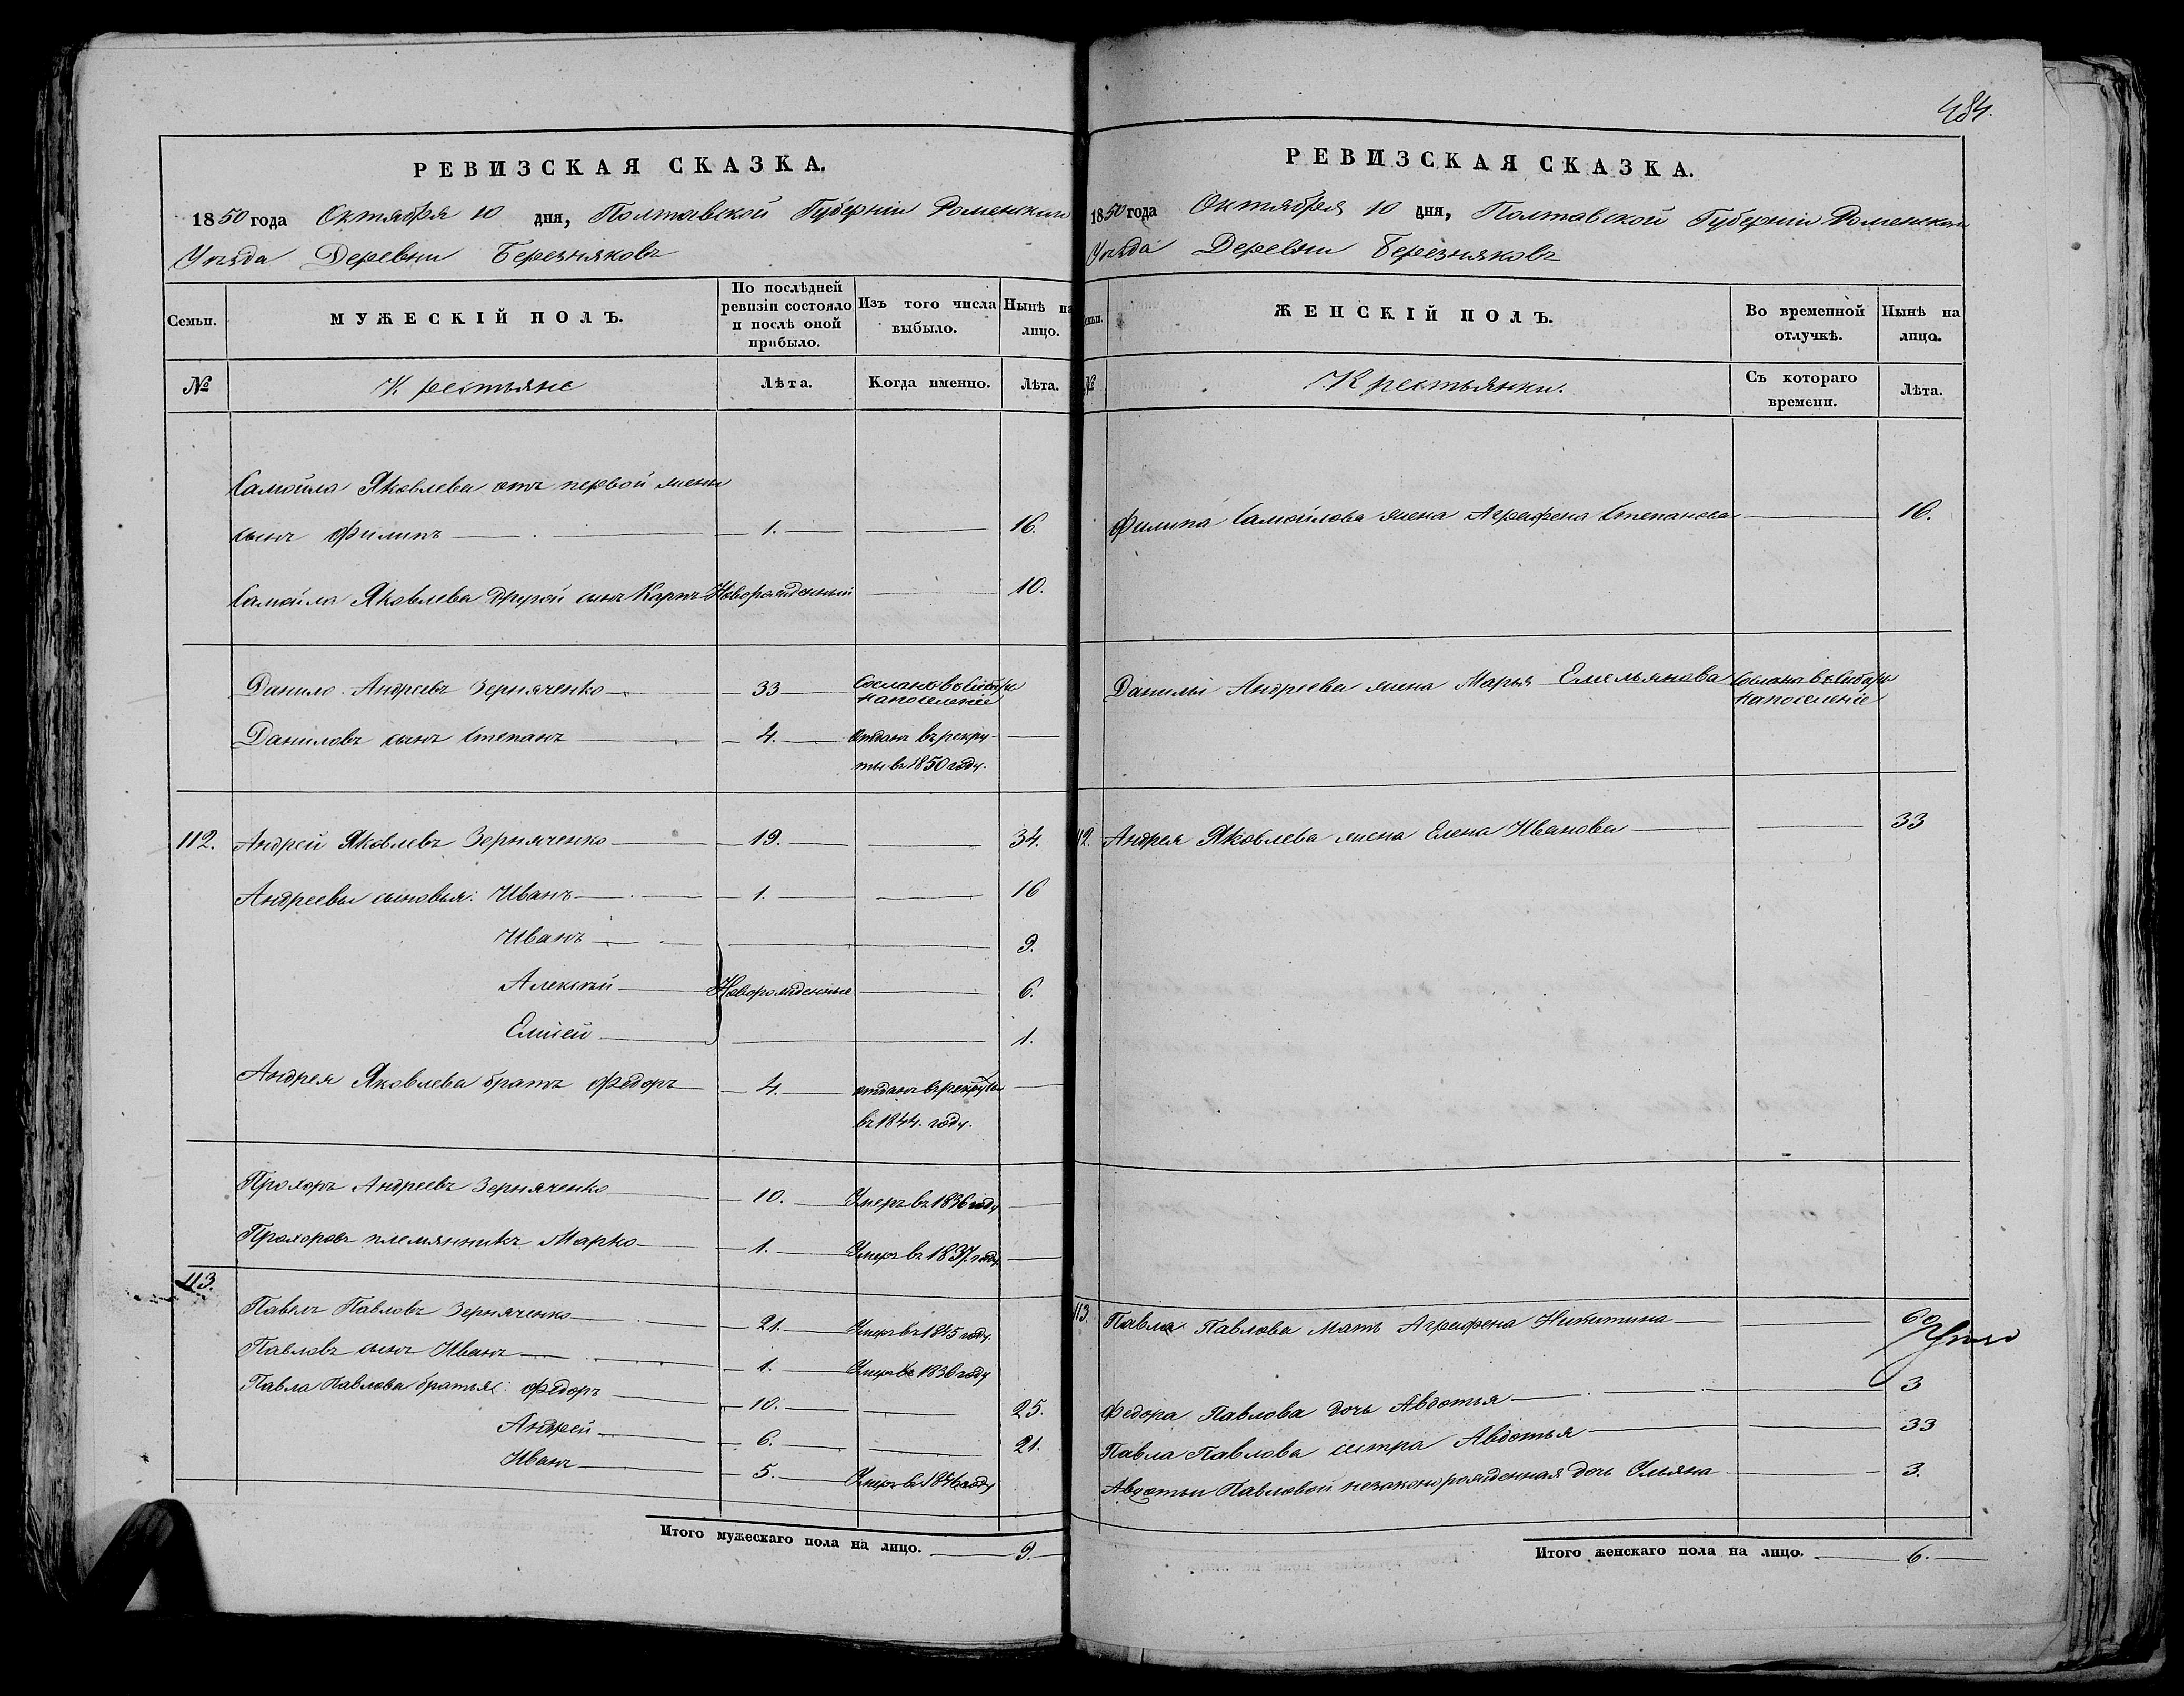 РЕВИЗСКАЯ СКАЗКА.
1850 года Октября 10 дня, Полтавской Губерніи Роменскаго
Уѣзда Деревни Березняковъ
Семьи.
МУЖЕСКІЙ ПОЛЪ.
По послѣдней
ревизіи состояло
и послѣ оной
прибыло.
Изъ того числа
выбыло.
Нынѣ на
лицо.
№
Крестьяне
Лѣта.
Когда именно.
Лѣта.
Самойла Яковлева отъ первой жены
сынъ Филипъ 1. 16.
Самойла Яковлева другой сынъ Карпъ Новорожденный 10.
Данило Андреевъ Зерняченко 33 Сосланъ въ Сибирь
на поселеніе
Даниловъ сынъ Степанъ 4. отданъ въ рекру-
ты въ 1850 году.
112. Андрей Яковлевъ Зерняченко 19. 34.
Андреевы сыновья: Иванъ 1. 16
Иванъ 9.
Алексѣй Новорожденные 6.
Елисей 1.
Андрея Яковлева братъ Федоръ 4. отданъ въ рекруты
въ 1844. году.
Прохоръ Андреевъ Зерняченко 10. Умеръ въ 1836 году
Прохоровъ племянникъ Марко 1. Умеръ въ 1837. году
113.
Павелъ Павловъ Зерняченко 21. Умеръ въ 1845 году.
Павловъ сынъ Иванъ 1. Умеръ въ 1836 году
Павла Павлова братья: Федоръ 10. 25.
Андрей 6. 21.
Иванъ 5. Умеръ въ 1846 году
Итого мужескаго пола на лицо. 9.
484.
РЕВИЗСКАЯ СКАЗКА.
1850 года Октября 10 дня, Полтавской Губерніи Роменскаго
Уѣзда Деревни Березняковъ
Семьи.
ЖЕНСКІЙ ПОЛЪ.
Во временной
отлучкѣ.
Нынѣ на
лицо.
№
Крестьянки.
Съ котораго
времени.
Лѣта.
Филипа Самойлова жена Агрифена Степанова 16.
Данилы Андреева жена Марья Емельянова Сослана въ Сибирь
на поселеніе
112. Андрея Яковлева жена Елена Иванова 33
113. Павла Павлова Мать Агрифена Никитина 60
Федора Павлова дочь Авдотья 3
Павла Павлова сестра Авдотья 33
Авдотьи Павловой незаконорожденная дочь Ульяна 3.
Итого женскаго пола на лицо. 6.